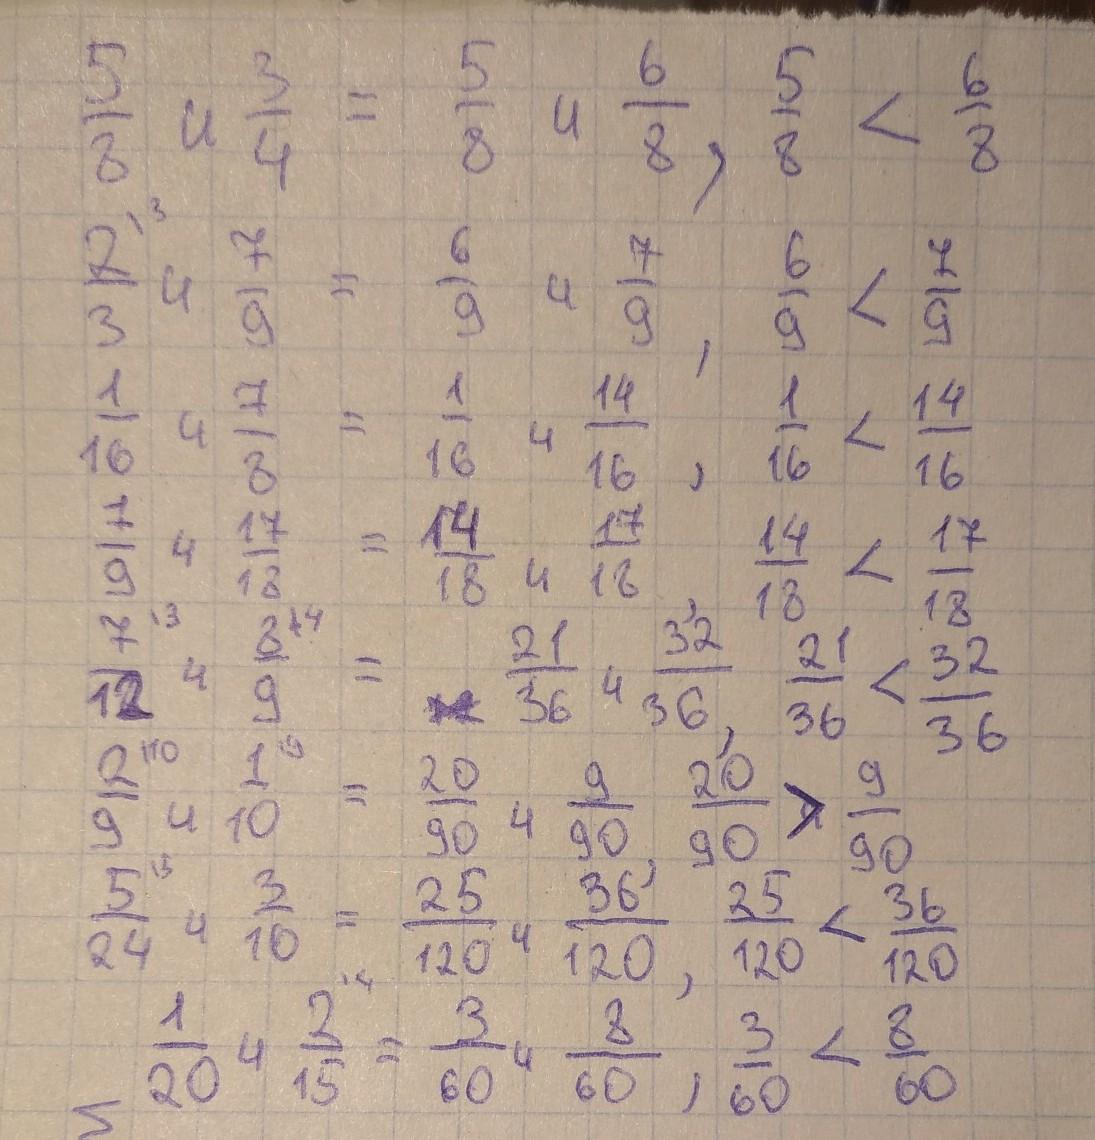 5/8 и 3/4 = 5/8 и 6/8, 5/8 < 6/8
2/3 ·3 и 7/9 = 6/9 и 7/9, 6/9 < 7/9
1/16 и 7/8 = 1/16 и 14/16, 1/16 < 14/16
7/9 и 17/18 = 14/18 и 17/18, 14/18 < 17/18
7/12 ·3 и 8/9 ·4 = 21/36 и 32/36, 21/36 < 32/36
2/9 ·10 и 1/10 ·9 = 20/90 и 9/90, 20/90 > 9/90
5/24 ·5 и 3/10 = 25/120 и 36/120, 25/120 < 36/120
1/20 и 2/15 ·4 = 3/60 и 8/60, 3/60 < 8/60